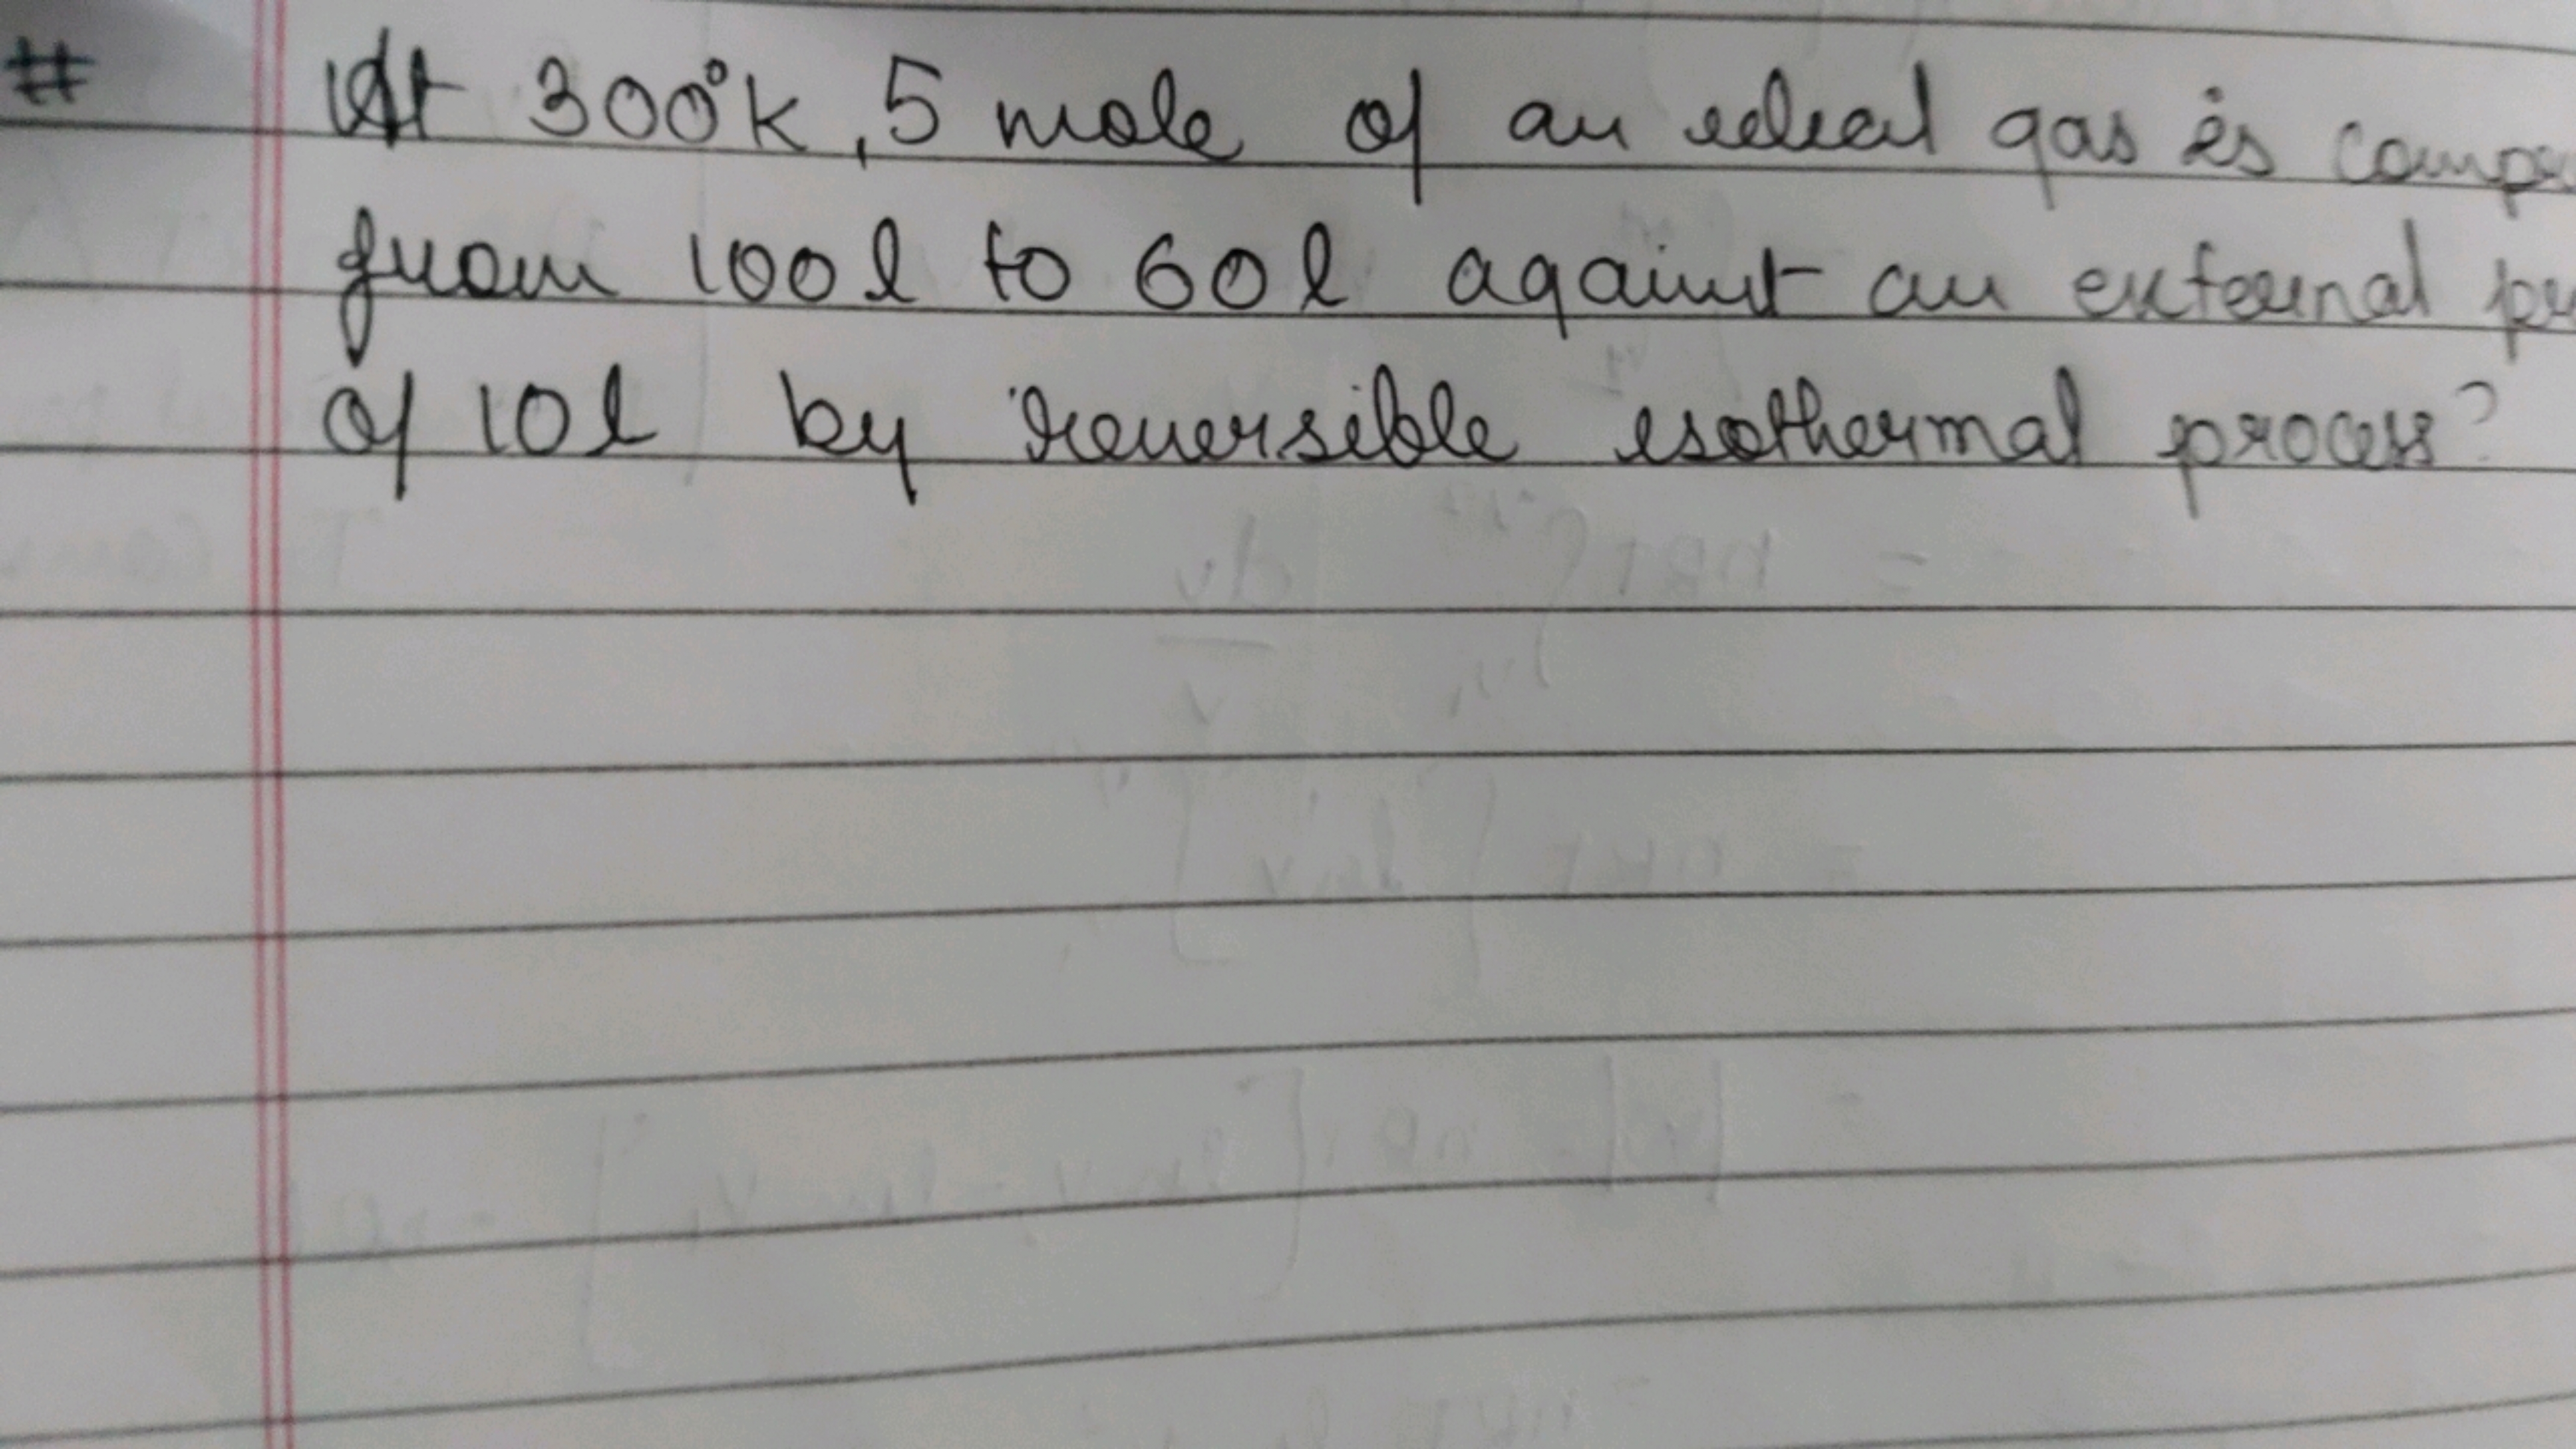 # At 300°K, 5 mole of an ideal gas is
from 100 l to 60 l against an external
of 10 l by reversible isothermal process?